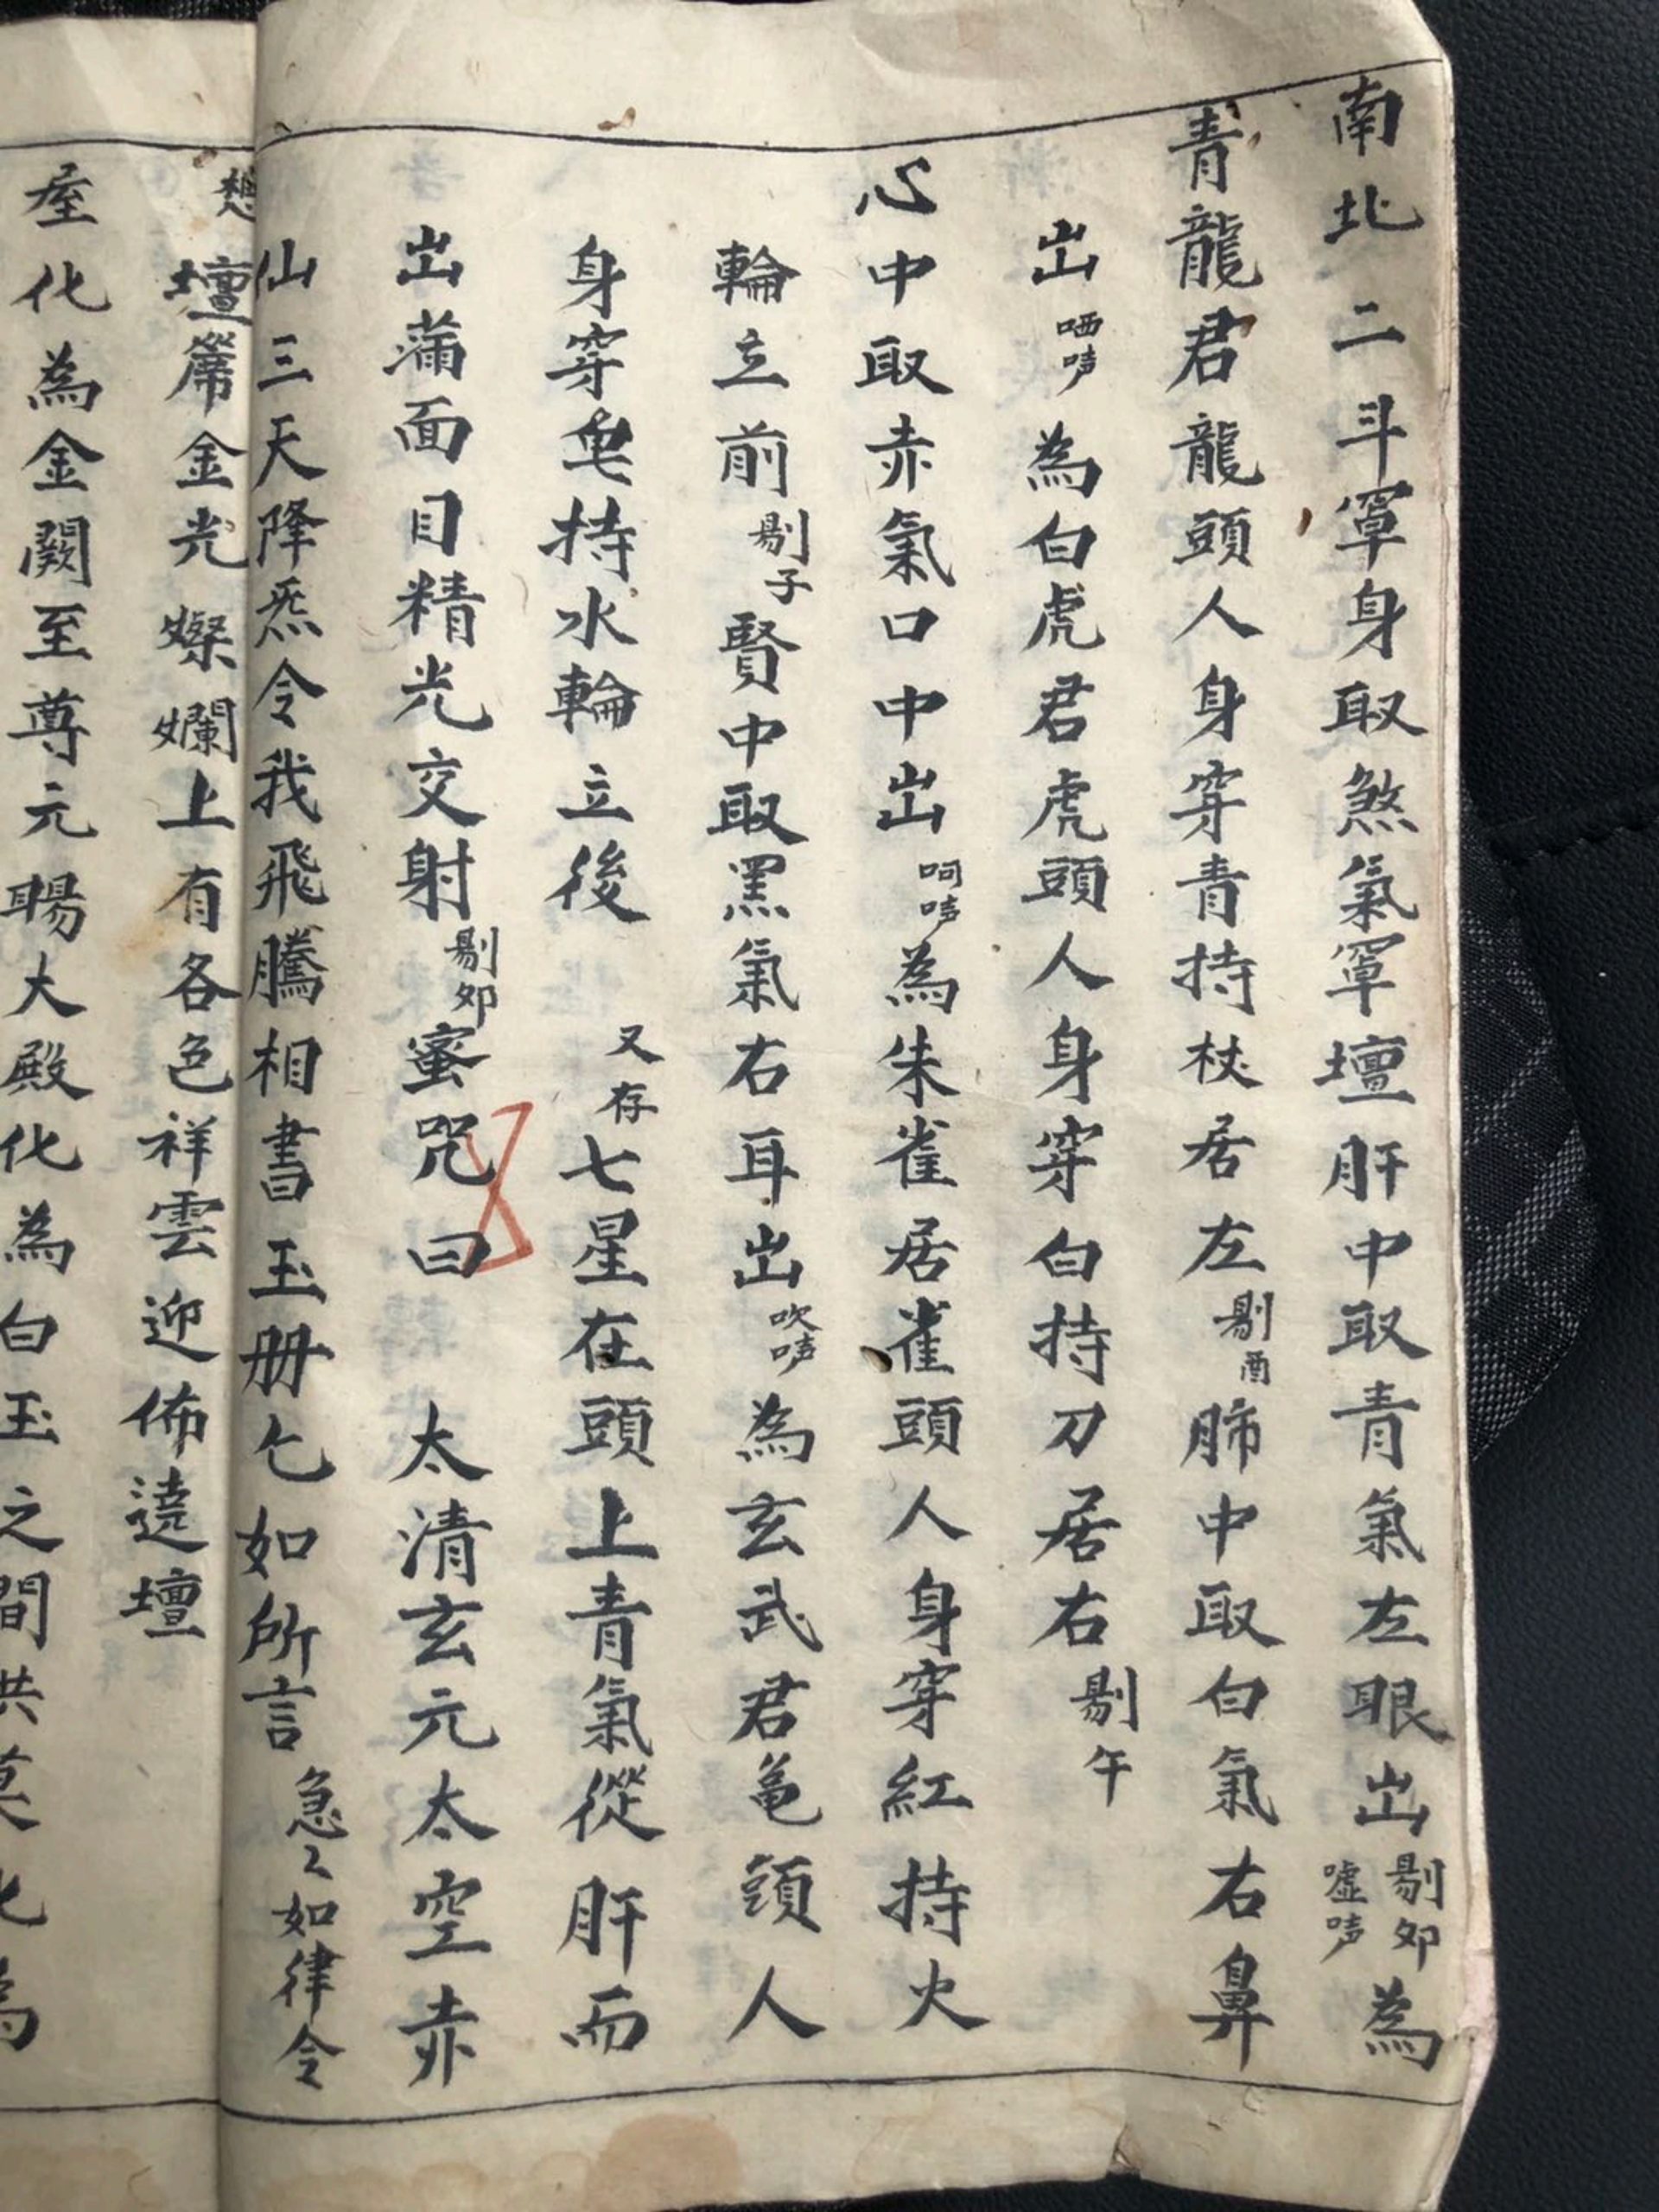 南北二斗罩身取煞氣罩壇肝中取青氣左眼出剔夘噓声為
青龍君龍頭人身穿青持杖居左剔酉肺中取白氣右鼻
出哂声為白虎君虎頭人身穿白持刀居右剔午
心中取赤氣口中出呵声為朱雀居雀頭人身穿紅持火
輪立前剔子賢中取黑氣右耳出吹声為玄武君黾頭人
身穿皂持水輪立後又存七星在頭上青氣從肝而
出蒲面目精光交射剔夘蜜咒曰太清玄元太空赤
仙三天降炁令我飛騰相書玉册乞如所言急々如律令
想壇席金光燦斕上有各色祥雲迎佈遶壇
座化為金闕至尊元賜大殿化為白玉之間